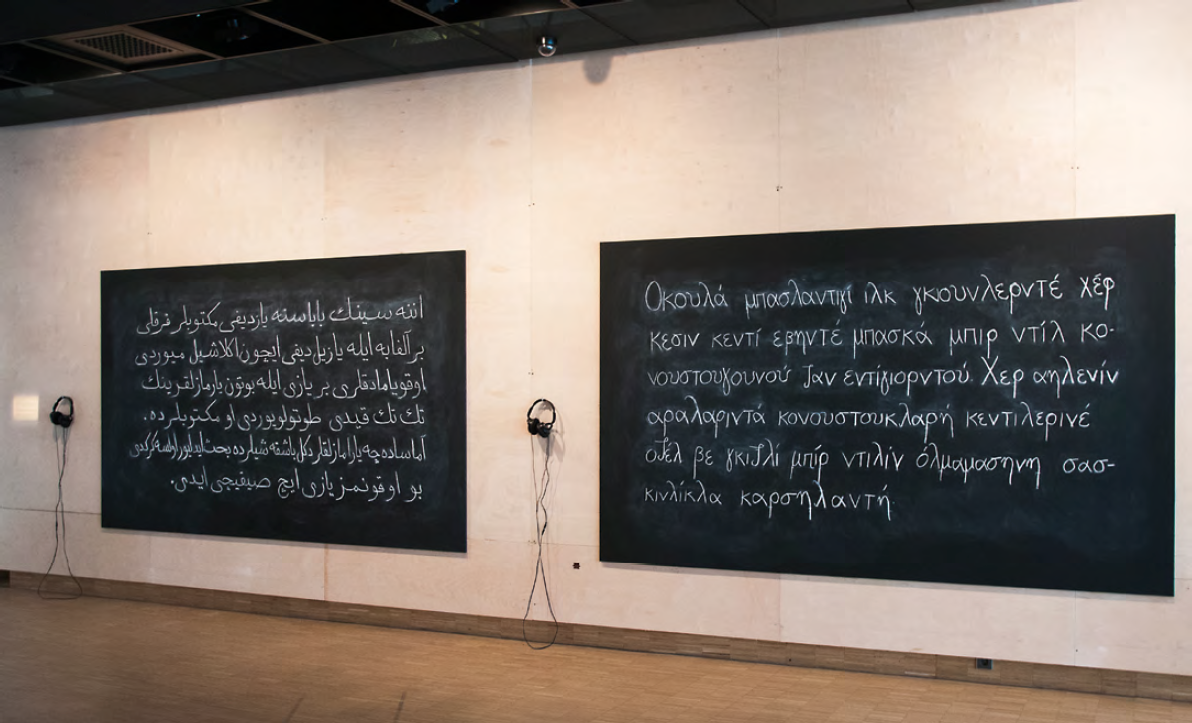 اننه سينك باباسنه يازديغى مكتوبلر فرقلى
بر آلفابه ايله يازيلديغى ايچون اكلاشيل ميوردى
اوقويامادقلرى بر يازى ايله بوتون يارمازلقرينك
تك تك قيدى طوتولويوردى او مكتوبلرده.
بو اوقونمز يازى ايچ صيقيجى ايدى.
Οκουλά μπασλαντιγί ιλκ γκιουνλερντέ χέρ
κεσιν κεντί εβηντέ μπασκά μπιρ ντίλ κο-
νουστουγουνού Jαν εντίγιορντού. Χερ αηλενίν
αραλαριντά κονουστουκλαρή κεντιλερινέ
οJέλ βε γκιJλί μπίρ ντιλίν όλμαμασηνη σασ-
κινλίκλα καρσηλαντή.